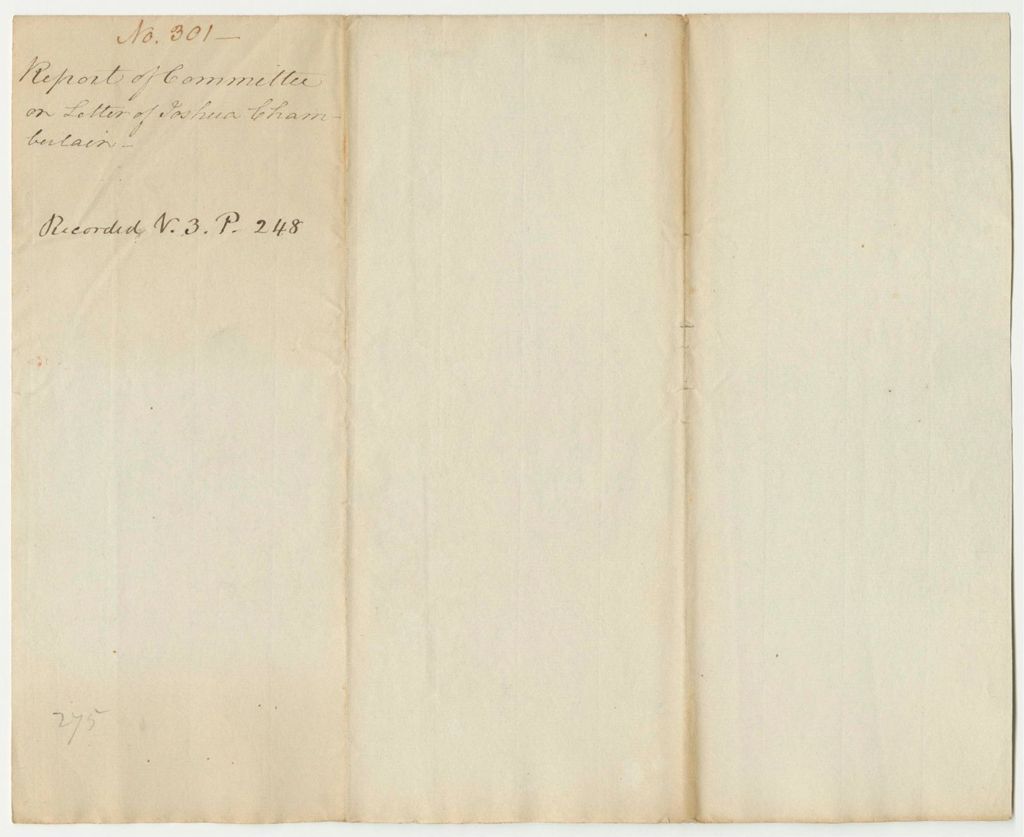 No. 301—
Report of Committee
on Letter of Joshua Cham-
berlain—
Recorded V. 3. P. 248
275